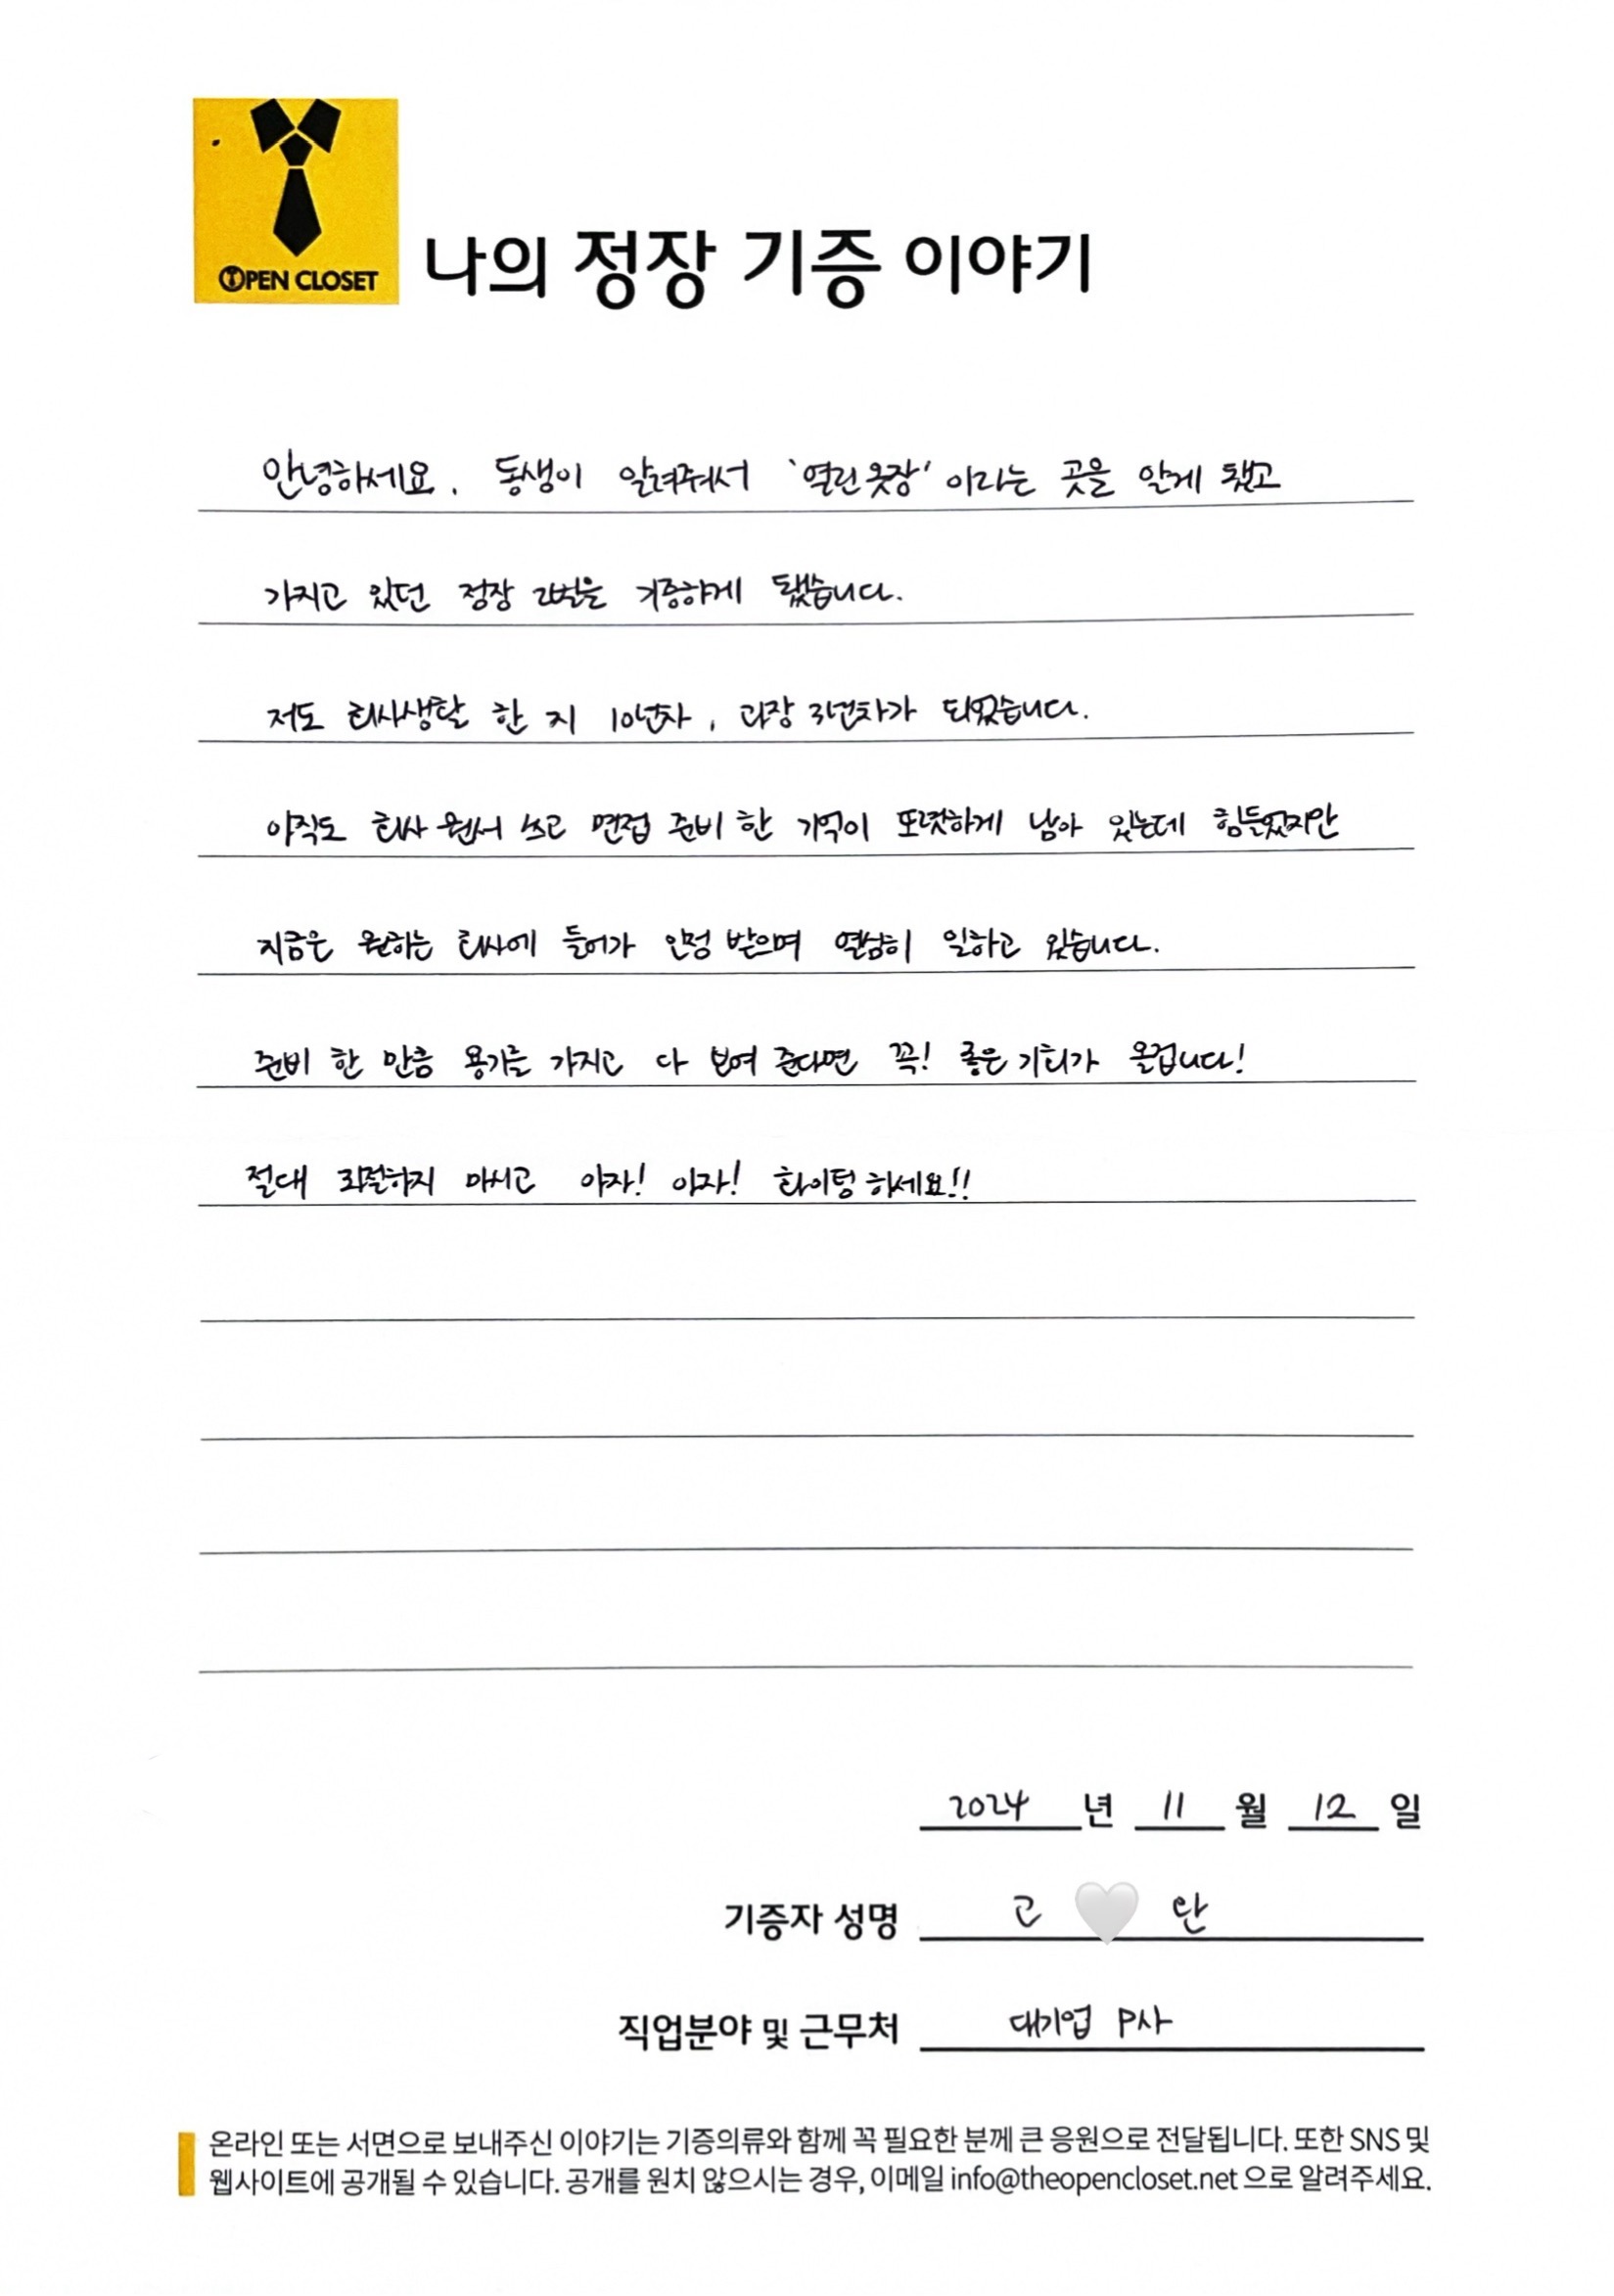 OPEN CLOSET
나의 정장 기증 이야기
안녕하세요. 동생이 알려줘서 '열린옷장' 이라는 곳을 알게 됐고
가지고 있던 정장 2벌을 기증하게 됐습니다.
저도 회사생활 한 지 10년차, 과장 3년차가 되었습니다.
아직도 회사 원서 쓰고 면접 준비 한 기억이 또렷하게 남아 있는데 힘들었지만
지금은 원하는 회사에 들어가 인정 받으며 열심히 일하고 있습니다.
준비 한 만큼 용기를 가지고 다 보여 준다면 꼭! 좋은 기회가 올겁니다!
절대 좌절하지 마시고 아자! 아자! 화이팅 하세요!!
2024 년 11 월 12 일
기증자 성명 고 🤍 란
직업분야 및 근무처 대기업 P사
온라인 또는 서면으로 보내주신 이야기는 기증의류와 함께 꼭 필요한 분께 큰 응원으로 전달됩니다. 또한 SNS 및
웹사이트에 공개될 수 있습니다. 공개를 원치 않으시는 경우, 이메일 info@theopencloset.net 으로 알려주세요.